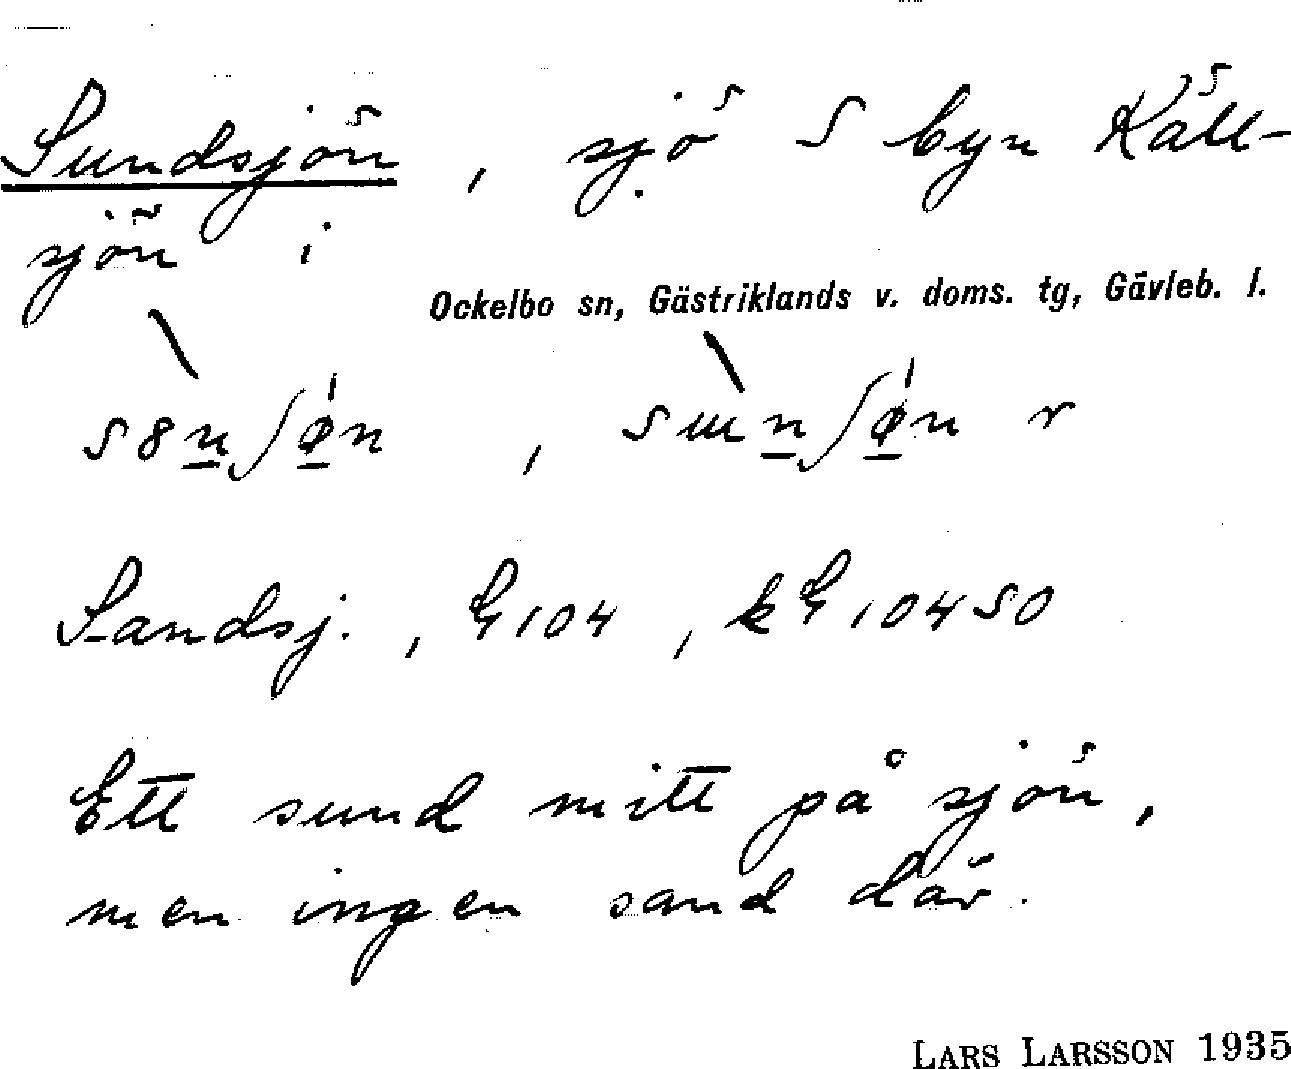 Sundsjön, sjö S byn Käll-
sjön i
Ockelbo sn, Gästriklands v. doms. tg, Gävleb. l.
Sandsj., G104, kG10450
Ett sund mitt på sjön,
men ingen sand där.
LARS LARSSON 1935